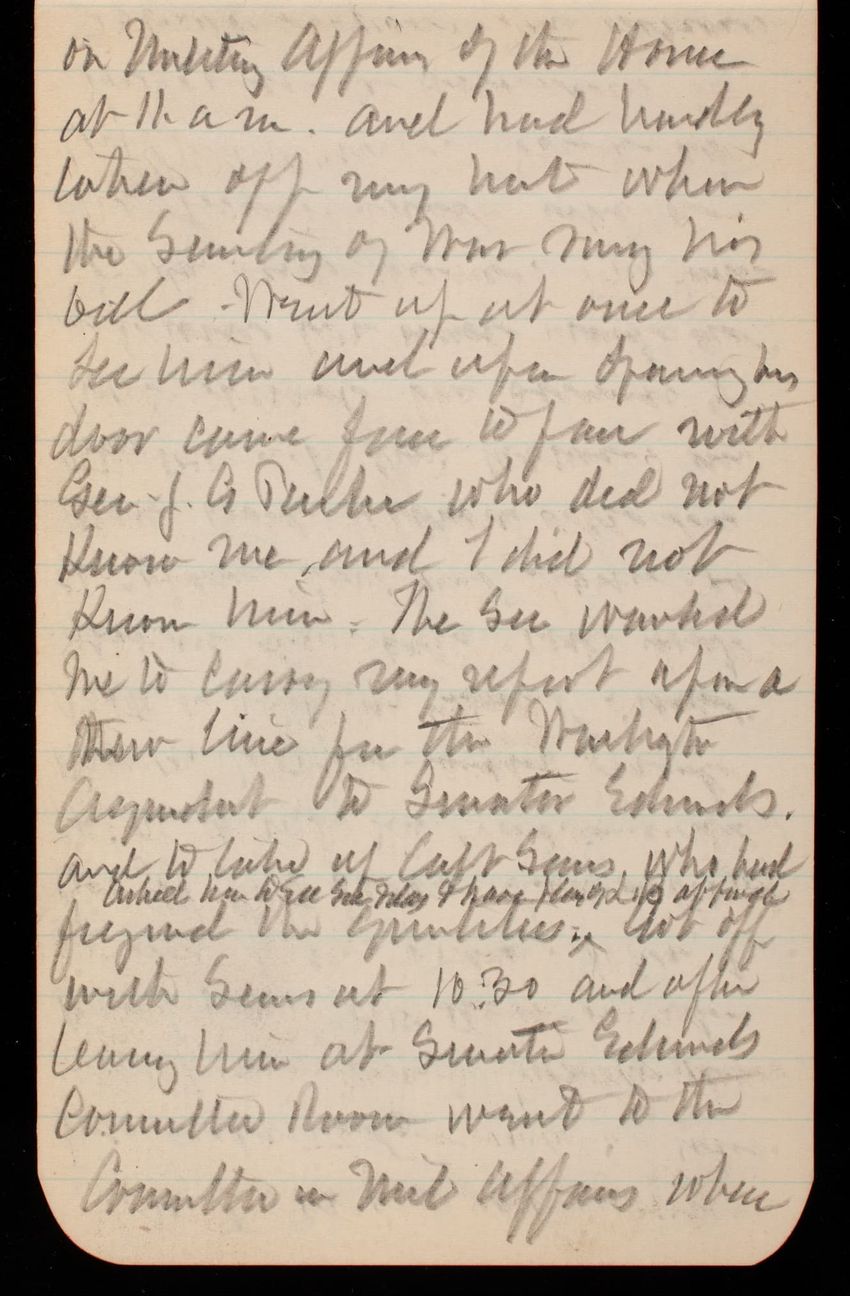 on Military Affairs of the House
at 11 a m. and had hardly
taken off my hat when
the Secretary of War rang his
bell. Went up at once to
see him and upon opening his
door came face to face with
Gen. J. G who did not
know me, and I did not
know him. The Sec wanted
me to carry my report upon a
new line for the Washington
Aqueduct to Senator Edmunds.
and to take up Capt Sears, who had
asked him to see Sec & have of
figured the quantities. Got off
with Sears at 10:30 and after
leaving him at Senator Edmunds
Committee Room went to the
Committee on Mil Affairs where